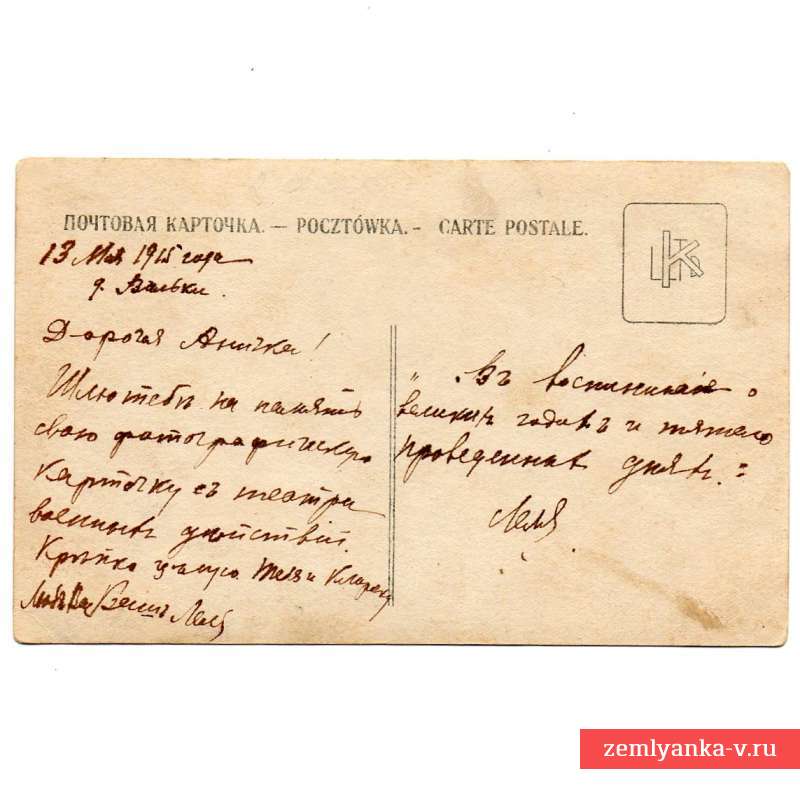 ПОЧТОВАЯ КАРТОЧКА. — POCZTÓWKA. - CARTE POSTALE.
13 Мая 1915 года
д. Вальки.
Дорогая Аничка!
Шлю тебѣ на память
свою фотографическую
карточку съ театра
военныхъ дѣйствій.
Крѣпко цѣлую тебя и
Вашъ Леля
„Въ воспоминание о
великихъ годахъ и тяжело
проведенныхъ дняхъ.“
Леля
zemlyanka-v.ru